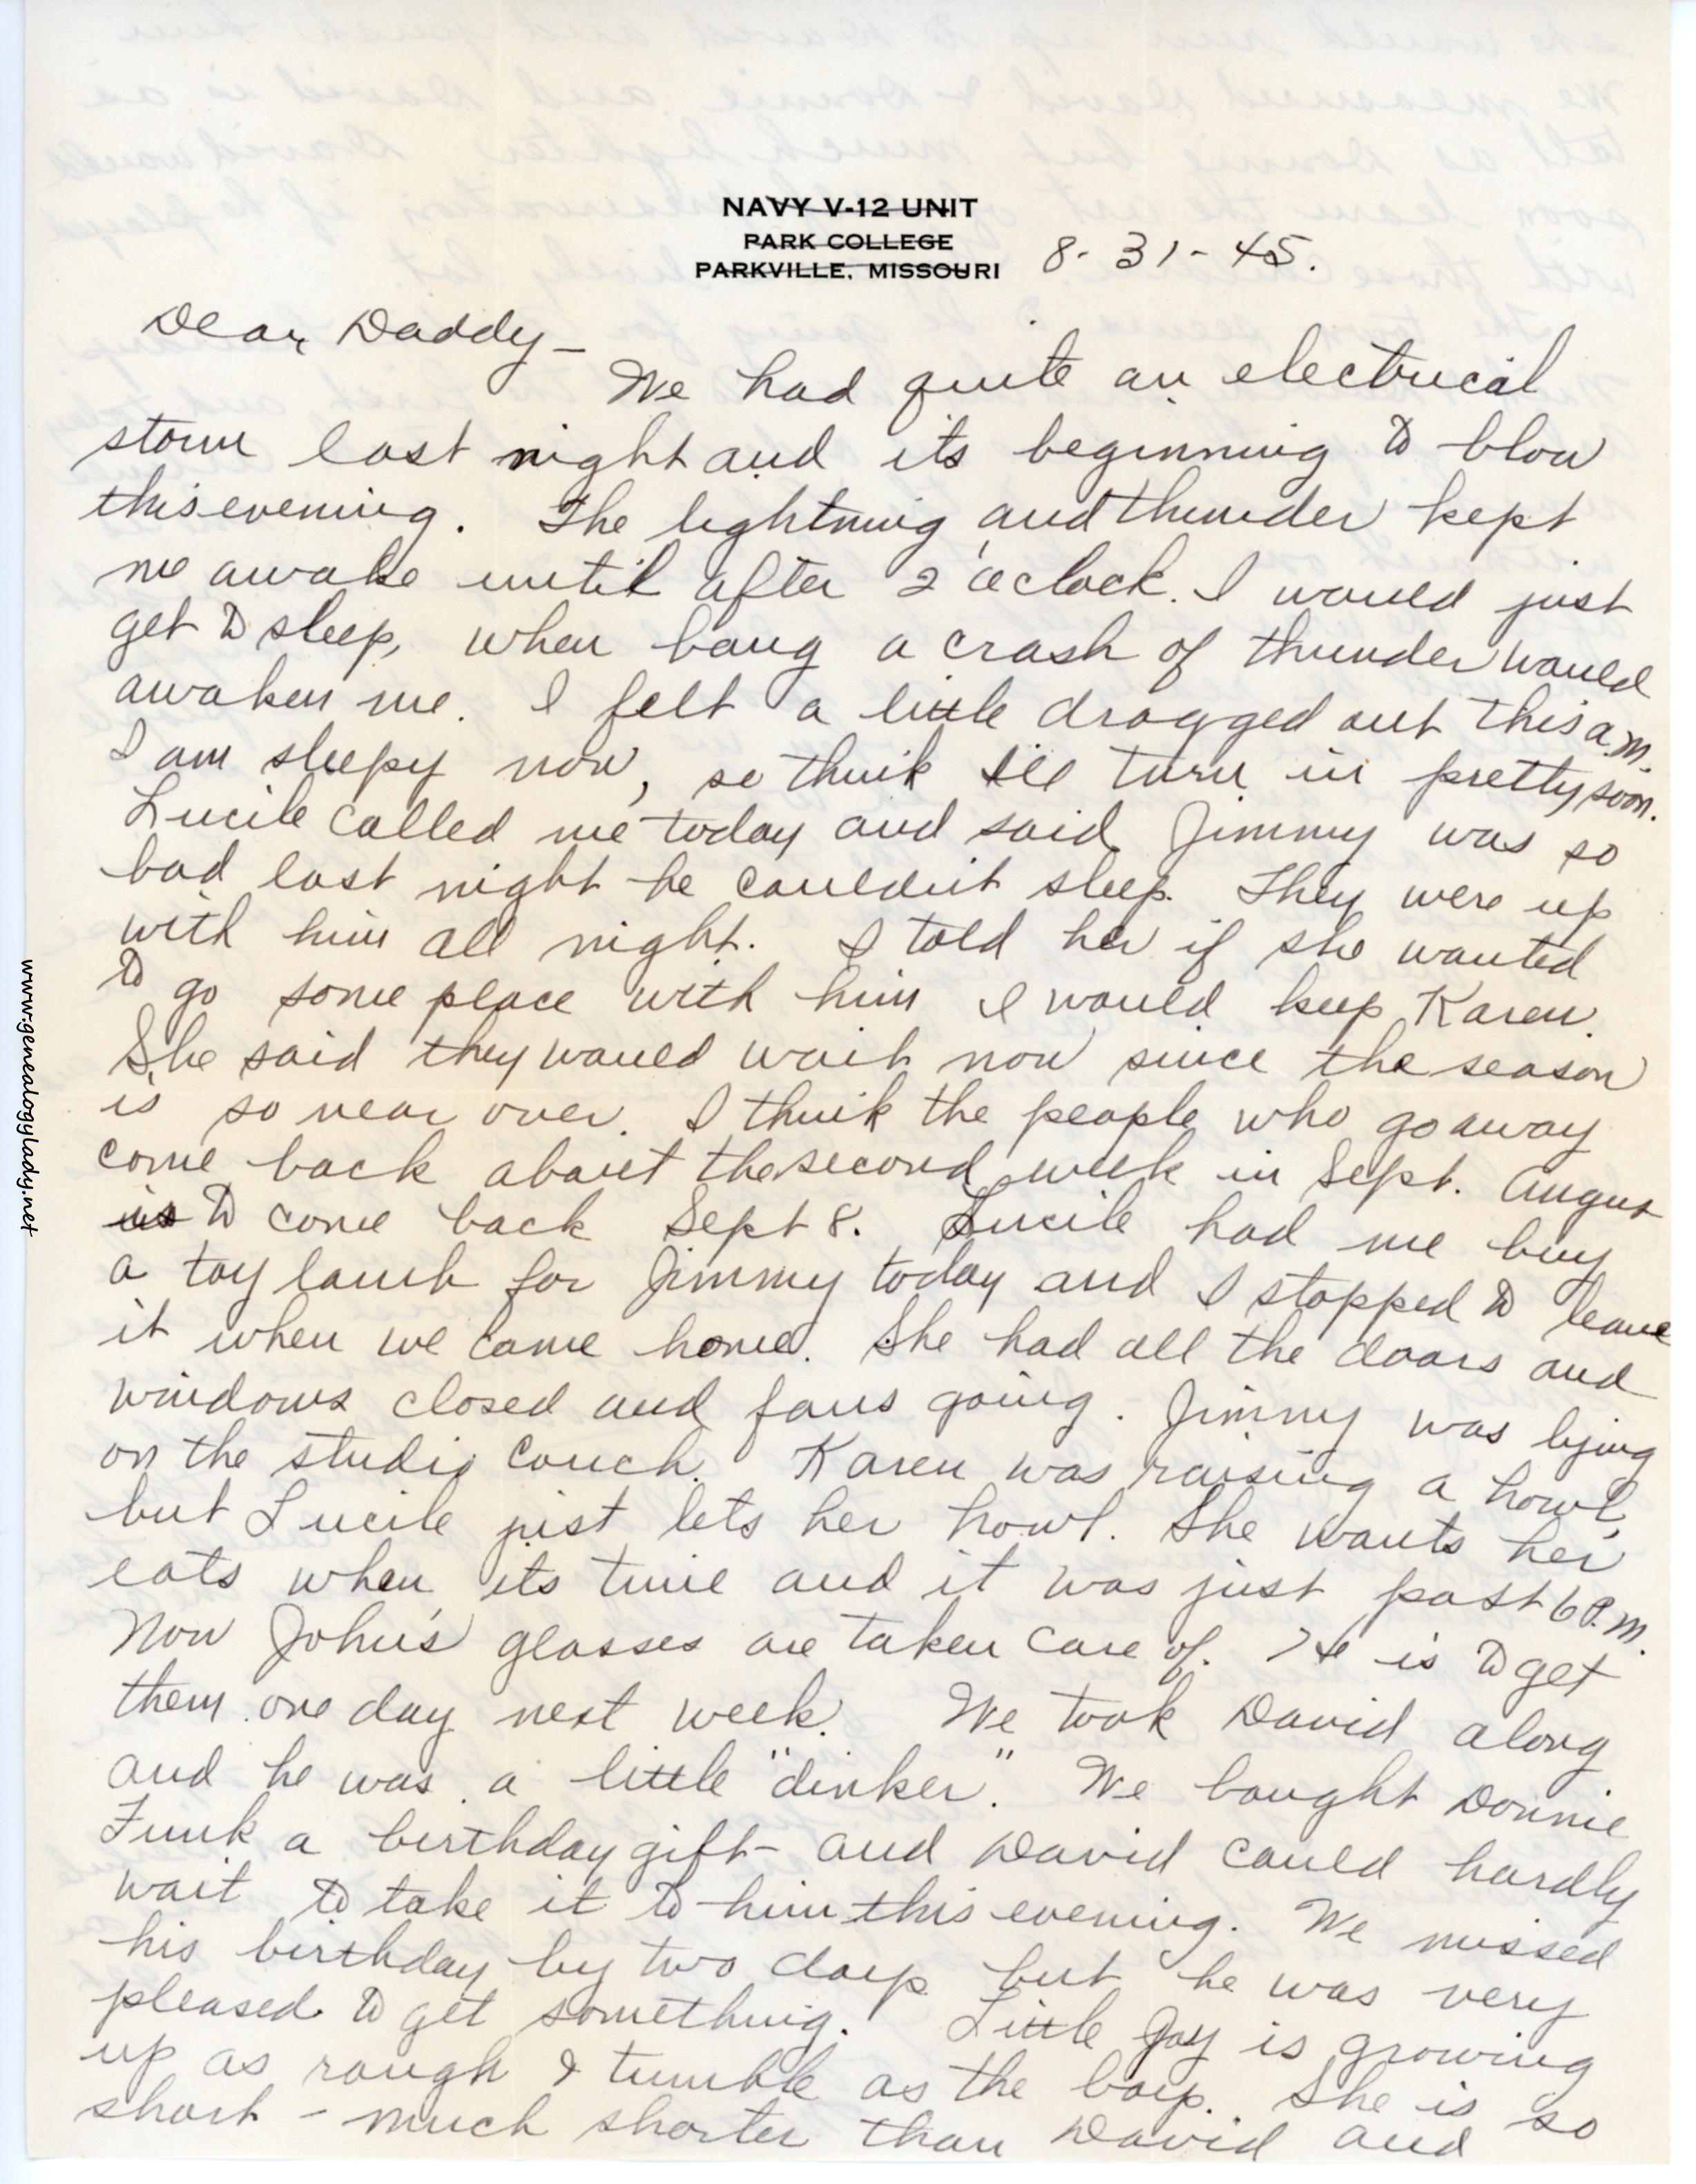 NAVY V-12 UNIT
PARK COLLEGE
PARKVILLE, MISSOURI
8-31-45.
Dear Daddy—
We had quite an electrical
storm last night and its beginning to blow
this evening. The lightning and thunder kept
me awake until after 2 o'clock. I would just
get to sleep, when bang a crash of thunder would
awaken me. I felt a little dragged out this a.m.
I am sleepy now, so think I'll turn in pretty soon.
Lucile called me today and said Jimmy was so
bad last night he couldn't sleep. They were up
with him all night. I told her if she wanted
to go some place with him I would keep Karen.
She said they would wait now since the season
is so near over. I think the people who go away
come back about the second week in Sept. August
is to come back Sept 8. Lucile had me buy
a toy lamb for Jimmy today and I stopped to leave
it when we came home. She had all the doors and
windows closed and fans going. Jimmy was lying
on the studio couch. Karen was raising a howl,
but Lucile just lets her howl. She wants her
eats when its time and it was just past 6 P.M.
Now John's glasses are taken care of. He is to get
them one day next week. We took David along
and he was a little "dinker". We bought Donnie
Funk a birthday gift - and David could hardly
wait to take it to him this evening. We missed
his birthday by two days but he was very
pleased to get something. Little Joy is growing
up as rough & tumble as the boys. She is so
short - much shorter than David and
www.genealogylady.net